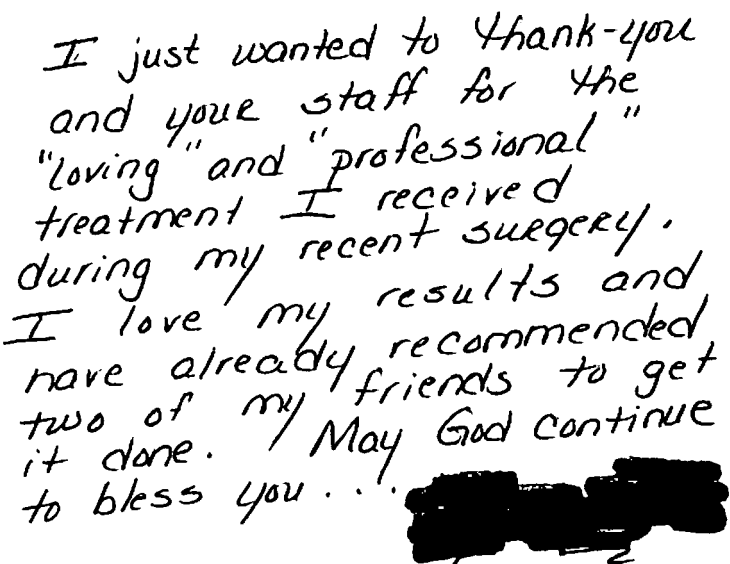 I just wanted to thank-you
and your staff for the
"loving" and "professional"
treatment I received
during my recent surgery.
I love my results and
have already recommended
two of my friends to get
it done. May God continue
to bless you . . .